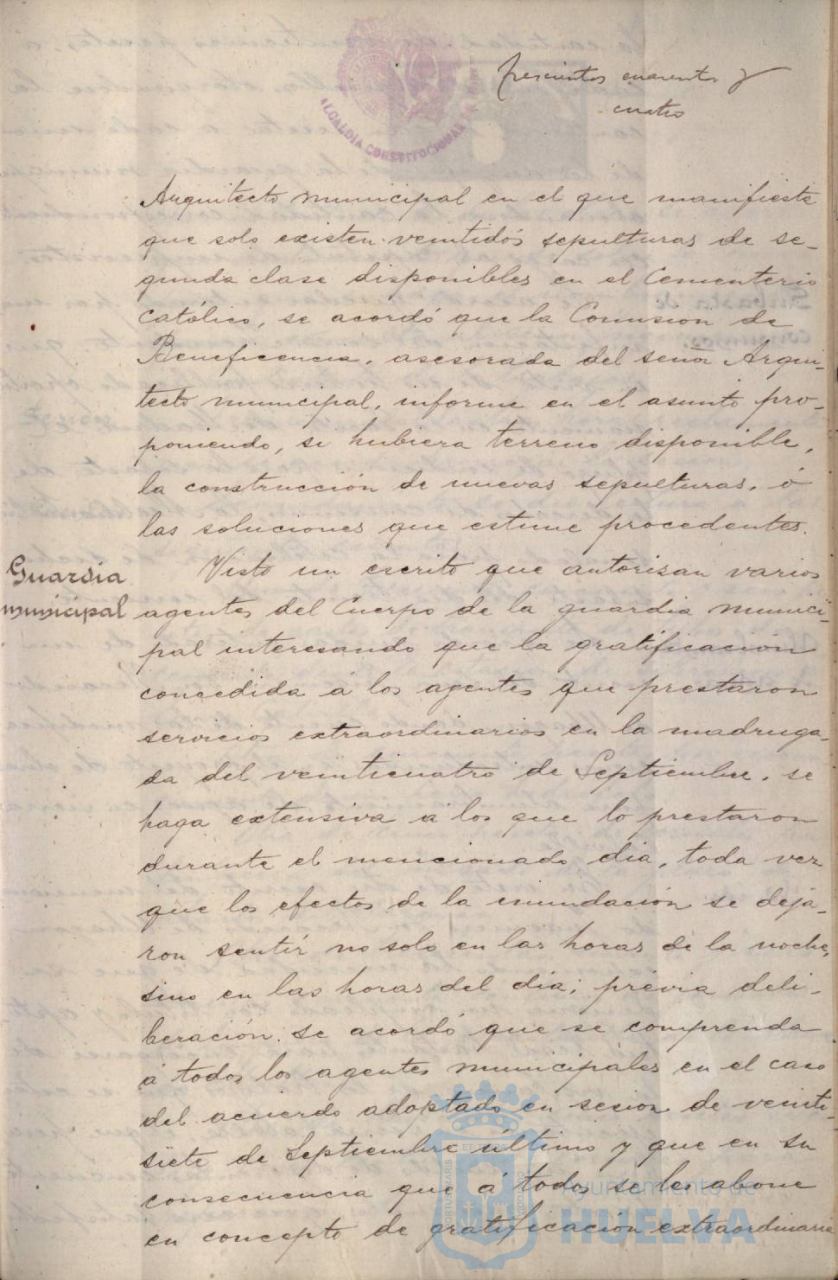 trescientos cuarenta y
cuatro
ALCALDIA CONSTITUCIONAL DE
Arquitecto municipal en el que manifieste
que solo existen veintidós sepulturas de se-
gunda clase disponibles en el Cementerio
Católico, se acordó que la Comision de
Beneficencia, asesorada del señor Arqui-
tecto municipal, informe en el asunto pro-
poniendo, si hubiera terreno disponible,
la construcción de nuevas sepulturas, ó
las soluciones que estime procedentes.
Guardia
municipal
Visto un escrito que autorisan varios
agentes del Cuerpo de la guardia munici-
pal interesando que la gratificación
concedida á los agentes que prestaron
servicios extraordinarios en la madruga-
da del veinticuatro de Septiembre, se
haga extensiva a los que lo prestaron
durante el mencionado dia, toda vez
que los efectos de la inundación se deja-
ron sentir no solo en las horas de la noche,
sino en las horas del dia; prévia deli-
beración se acordó que se comprenda
á todos los agentes municipales en el caso
del acuerdo adoptado en sesion de veinti-
siete de Septiembre último y que en su
consecuencia que á todos se les abone
en concepto de gratificación extraordinaria
Ayuntamiento de
HUELVA